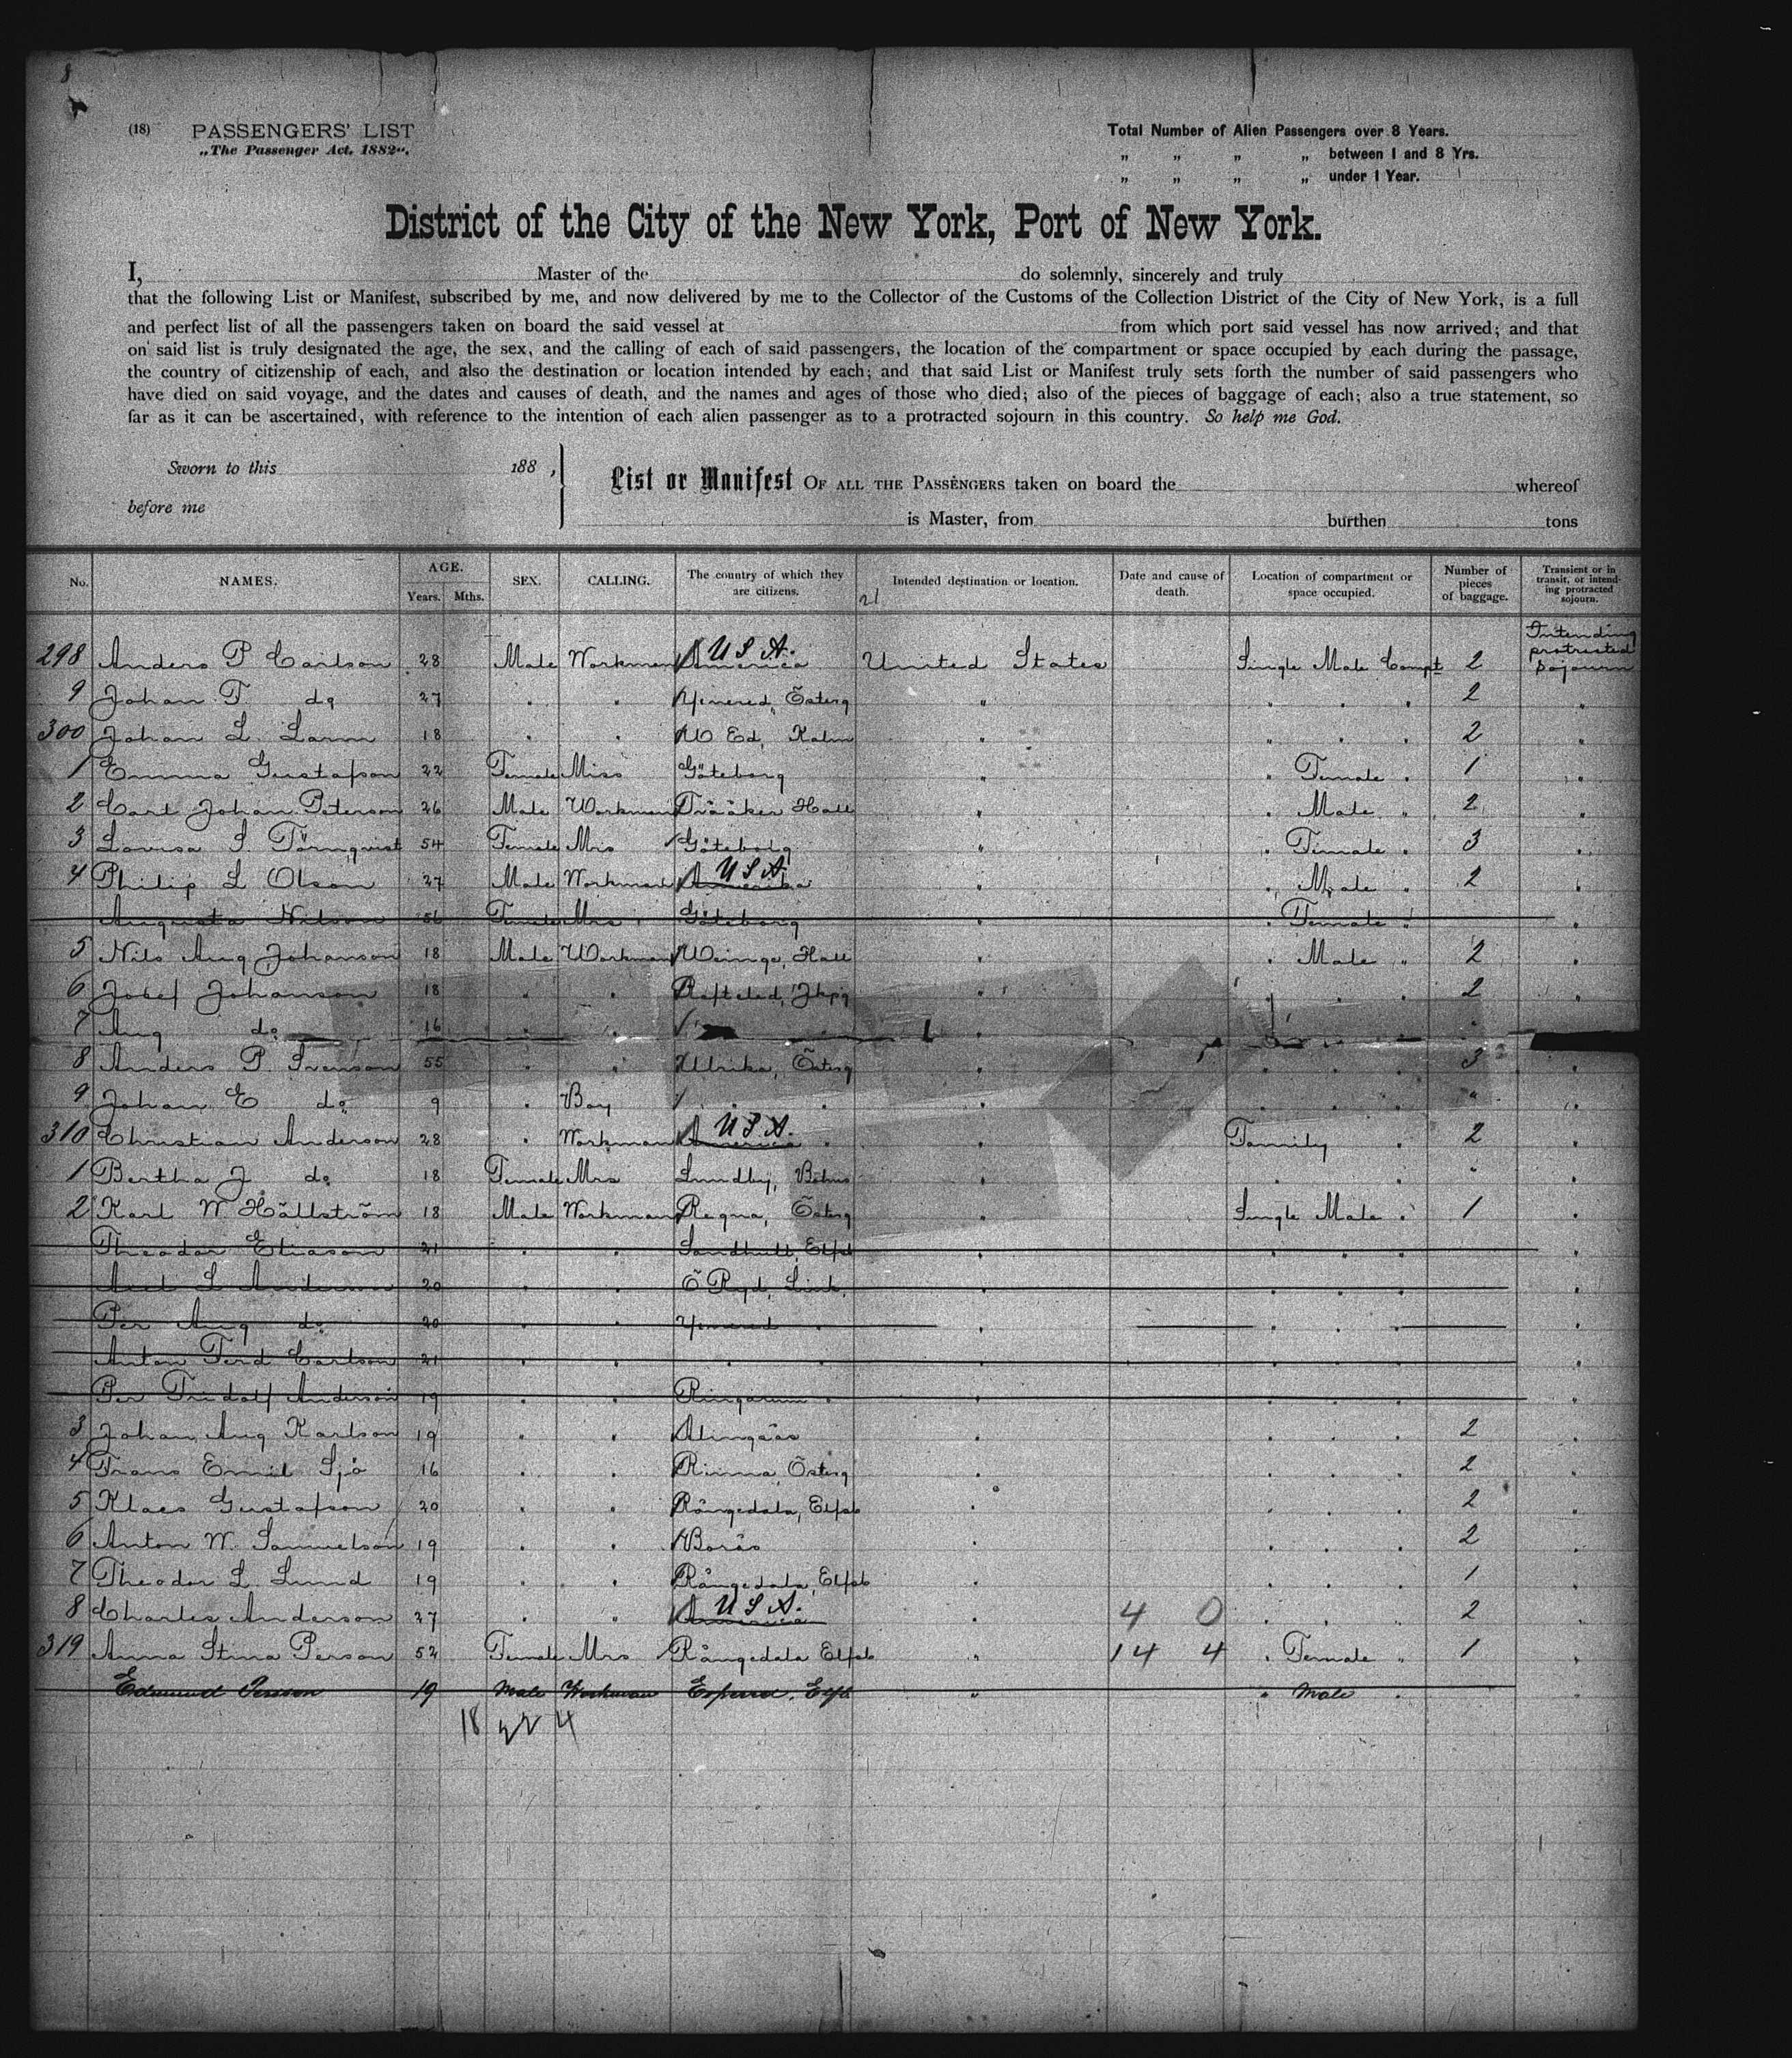 8
(18) PASSENGERS' LIST
„The Passenger Act, 1882".
Total Number of Alien Passengers over 8 Years.
„ „ „ „ between 1 and 8 Yrs.
„ „ „ „ under 1 Year.
District of the City of the New York, Port of New York.
I, Master of the do solemnly, sincerely and truly
that the following List or Manifest, subscribed by me, and now delivered by me to the Collector of the Customs of the Collection District of the City of New York, is a full
and perfect list of all the passengers taken on board the said vessel at from which port said vessel has now arrived; and that
on said list is truly designated the age, the sex, and the calling of each of said passengers, the location of the compartment or space occupied by each during the passage,
the country of citizenship of each, and also the destination or location intended by each; and that said List or Manifest truly sets forth the number of said passengers who
have died on said voyage, and the dates and causes of death, and the names and ages of those who died; also of the pieces of baggage of each; also a true statement, so
far as it can be ascertained, with reference to the intention of each alien passenger as to a protracted sojourn in this country. So help me God.
Sworn to this 188 ,
before me
List or Manifest OF ALL THE PASSENGERS taken on board the whereof
is Master, from burthen tons
No. NAMES. AGE. Years. Mths. SEX. CALLING. The country of which they are citizens. Intended destination or location. Date and cause of death. Location of compartment or space occupied. Number of pieces of baggage. Transient or in transit, or intending protracted sojourn.
21
298 Anders P Carlson 28 Male Workman America U S A. United States Single Male Compt 2 Intending protracted sojourn
9 Johan T do 27 " " Ymered, Österg " " " " 2 "
300 Johan L. Larm 18 " " W Ed, Kalm " " " " 2 "
1 Emma Gustafson 22 Female Miss Göteborg " " Female " 1 "
2 Carl Johan Peterson 26 Male Workman Tvååker Hall " " Male " 2 "
3 Lovisa S Törnqvist 54 Female Mrs Göteborg " " Female " 3 "
4 Philip L Olson 27 Male Workman Amerika U S A. " " Male " 2 "
Augusta Nilson 56 Female Mrs Göteborg " " Female " "
5 Nils Aug Johanson 18 Male Workman Weinge, Hall " " Male " 2 "
6 Josef Johanson 18 " " Refteled, Jkpg " " " " 2 "
7 Aug do 16 " " " " " " " " " "
8 Anders P. Svenson 55 " " Ulrika, Österg " " " " 3 "
9 Johan E do 9 " Boy " " " " " " " "
310 Christian Anderson 28 " Workman America U S A. " Family " 2 "
1 Bertha J do 18 Female Mrs Lundby, Bohus " " " " "
2 Karl W. Hällström 18 Male Workman Regna, Österg " Single Male " 1 "
Theodor Eliason 21 " " Sandhult, Elfsb " " " " "
Axel L Anderson 20 " " Ö Ryd, Link. " " " " "
Per Aug do 20 " " Ymered " " " " " "
Anton Ferd Carlson 21 " " " " " " " " "
Per Fridolf Anderson 19 " " Ringarum " " " " " "
3 Johan Aug Karlson 19 " " Alingsås " " " " 2 "
4 Frans Emil Sjö 16 " " Rinna Österg " " " " 2 "
5 Klaes Gustafson 20 " " Rångedala, Elfsb " " " " 2 "
6 Anton W. Samuelson 19 " " Borås " " " " 2 "
7 Theodor L. Lund 19 " " Rångedala, Elfsb " " " " 1 "
8 Charles Anderson 27 " " America U S A. " 4 0 " " " 2 "
319 Anna Stina Person 52 Female Mrs Rångedala Elfsb " 14 4 " Female " 1 "
Edmund Person 19 Male Workman " " Male "
18 22 4